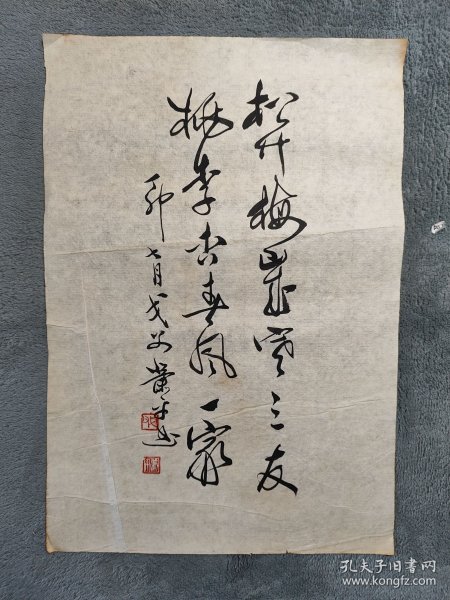 松竹梅岁寒三友
桃李杏春风一家
卯七月
孔夫子旧书网
www.kongfz.com